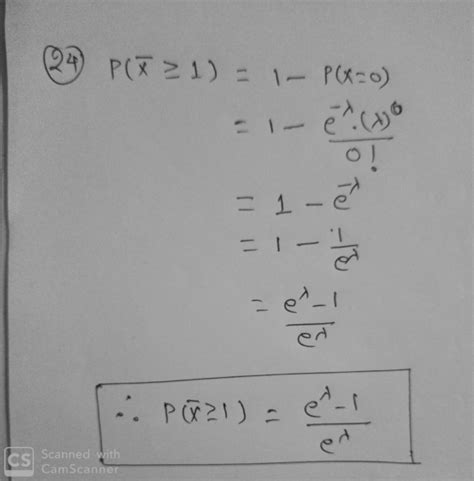 (24) P(x̄ ≥ 1) = 1 - P(x=0)
= 1 - e^-λ.(λ)^0 / 0!
= 1 - e^-λ
= 1 - 1/e^λ
= e^λ-1 / e^λ
∴ P(x̄≥1) = e^λ-1 / e^λ
CS Scanned with
CamScanner